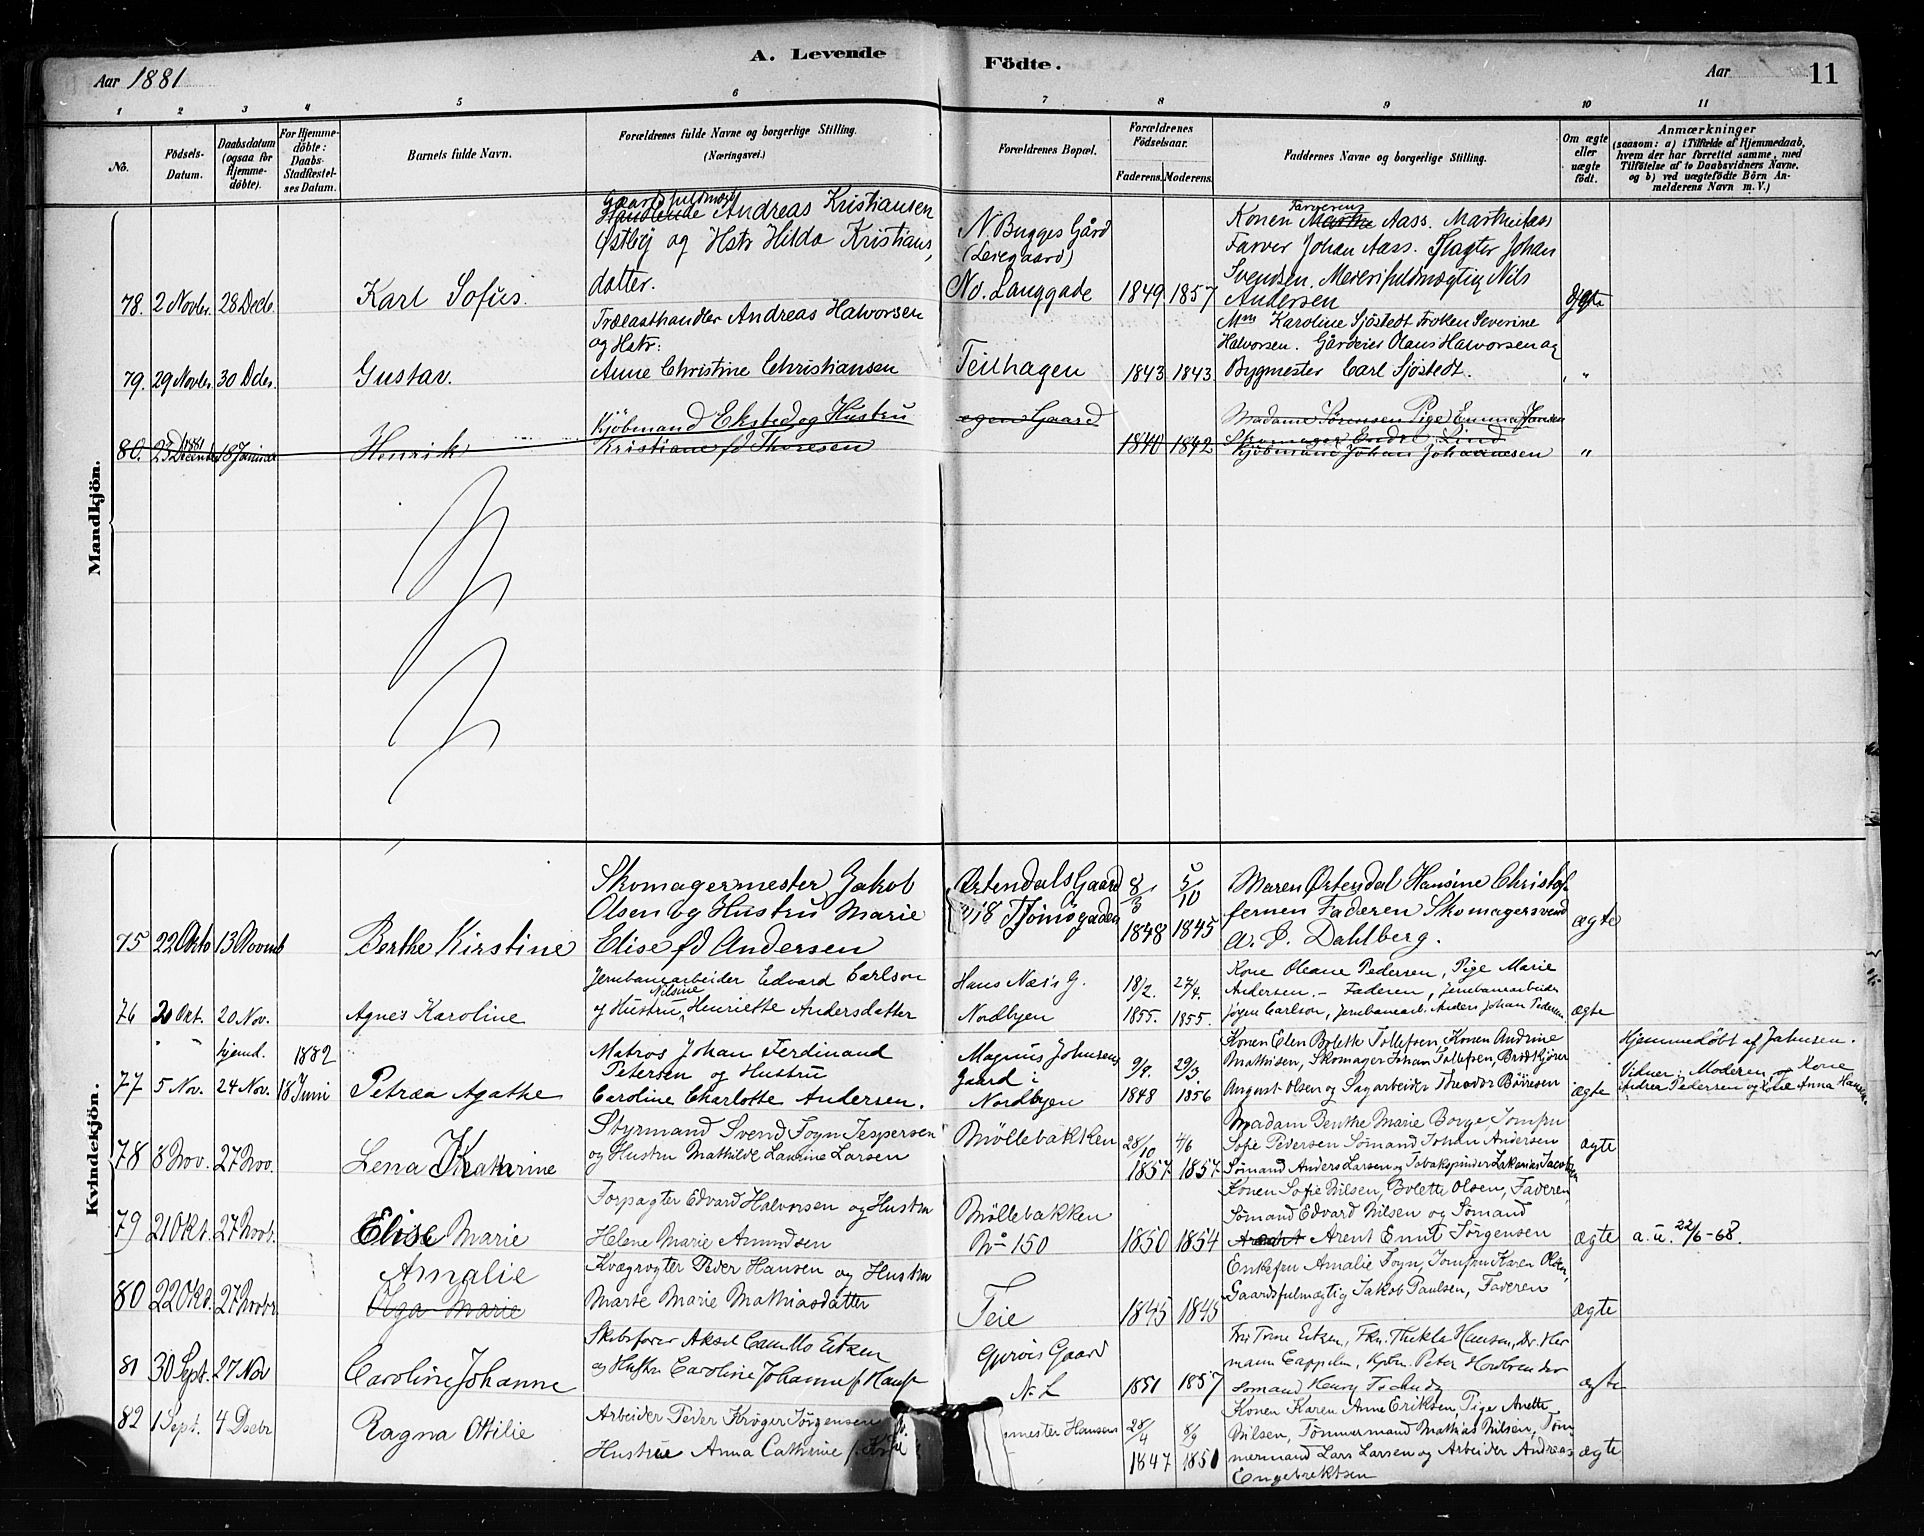 A. Levende Födte.
Aar 1881
Aar 11
1 2 3 4 5 6 7 8 9 10 11
No.
Födsels-Datum.
Daabsdatum (ogsaa för Hjemme-döbte).
For Hjemme-döbte: Daabs-Stadfæstelses Datum.
Barnets fulde Navn.
Forældrenes fulde Navne og borgerlige Stilling. (Næringsvei.)
Forældrenes Bopæl.
Forældrenes Födselsaar.
Faderens. Moderens.
Faddernes Navne og borgerlige Stilling.
Om ægte eller uægte födt.
Anmærkninger
(saasom: a) i Tilfælde af Hjemmedaab, hvem der har forrettet samme, med Tilföielse af to Daabsvidners Navne. og b) ved uægtefödte Börn Anmelderens Navn m. V.)
Mandkjön.
Gaardsfuldmægt
Handlende Andreas Kristiansen
Østby og Hstr Hilda Kristians,
datter.
78. 2 Novbr. 28 Decb. Karl Sofus.
N. Bugges Gård
(Leiegaard)
No. Langgade 1849 1857
Farverens
Konen Marthe Aass. Marthe Aass
Farver Johan Aass. Slagter Johan
Svendsen. Meierifuldmægtig Nils
Andersen
Ægte
Trælasthandler Andreas Halvorsen
og Hstr:
Anne Christine Christiansen
79. 29 Novbr. 30 Dcbr. Gustav.
Teilhagen 1843 1843
Mm Karoline Sjöstedt Frøken Severine
Halvorsen. Gårdeier Olaus Halvorsen og
Bygmester Carl Sjöstedt.
"
80. 23 December 1881 18 Januar Henrik
Kjöbmand Eksted og Hustru
Kristiane fd Thoresen
egen Gaard 1840 1842
Madame Sörensen Pige Emma Jansen
Skomager Endre Lind
Kjöbmand Johan Johannesen
"
Kvindekjön.
75 22 Okto 13 Novmb Berthe Kirstine
Skomagermester Jakob
Olsen og Hustru Marie
Elise fd Andersen
Ørtendals Gaard
918 Tjömögaden
8/3 1848 5/10 1845
Maren Ørtendal Hansine Christof
fersen Faderen Skomagersvend
A. P. Dahlberg.
ægte
76 2 Okt. 20 Nov. Agnes Karoline
Jernbanearbeider Edvard Carlson
Nilsine
og Hustru, Henriette Andersdatter
Hans Næs's G.
Nordbyen
18/2. 1855. 27/4. 1855.
Kone Oleane Pedersen, Pige Marie
Andersen. - Faderen, Jernbanearbeider
Jörgen Carlson, Jernbanearb. Anders Johan Pedersen
ægte
77 5 Nov. hjemd. 24 Nov. 1882 18 Juni Petræa Agathe
Matros Johan Ferdinand
Petersen og Hustru
Caroline Charlotte Andersen.
Magnus Johnsens
Gaard i
Nordbyen
9/8. 1848 29/3 1856
Konen Elen Bolette Tollefsen, Konen Andrine
Mathisen, Skomager Johan Tollefsen, Brödkjörer
August Olsen og Sagarbeider Theodor Börresen
ægte
Hjemmedöbt af Jahnsen.
Vidner: Moderen og Kone
Andrea Pedersen og Kone Anna Hansen.
78 8 Nov. 27 Nov. Lena Katharine
Styrmand Svend Foyn Jespersen
og Hustru Mathilde Laurine Larsen
Möllebakken
28/10 1857 4/6 1857
Madam Benthe Marie Borge Jomfru
Sofie Pedersen Sömand Johan Andersen
Sömand Anders Larsen og Tobakspinder Zakarias Jacobsen
ægte
79 21 Okt. 27 Novb. Elise Marie
Forpagter Edvard Halvorsen og Hustru
Helene Marie Amundsen
Möllebakken
No 150
1850 1854
Konen Sofie Nilsen, Bolette Olsen, Faderen,
Sömand Edvard Nilsen og Sömand
Arent Emil Jörgensen
ægte
a. u. 22/6-68.
80 22 Okt. 27 Novbr Amalie
Olga Marie
Kvægrögter Peder Hansen og Hustru
Marte Marie Mathiasdatter
Teie
1845 1845
Enkefru Amalie Foyn, Jomfru Karen Olsen,
Gaardsfulmægtig Jakob Paulsen, Faderen
ægte
81 30 Sept. 27 Nov Caroline Johanne
Skibsfører Aksel Camillo Eitzen
og Hustru Caroline Johanne f. Hansen
Gjervis Gaard
N. L
1851 1857
Fru Trine Eitzen, Frk. Thekla Hansen, Dr. Her
mann Cappelen, Kjöbm. Peter
Sömand Henry Tschudy
ægte
82 1 Sept. 4 Decbr Ragna Ottilie
Arbeider Peder Kröger Jörgensen og
Hustru Anna Cathrine
mester Hansens
28/4 1847 8/9 1851
Konen Karen Anne Eriksen Pige Anette
Nilsen, Tömmermand Mathias Nilsen, Töm
mermand Lars Larsen og Arbeider Andreas
Engebrektsen
ægte